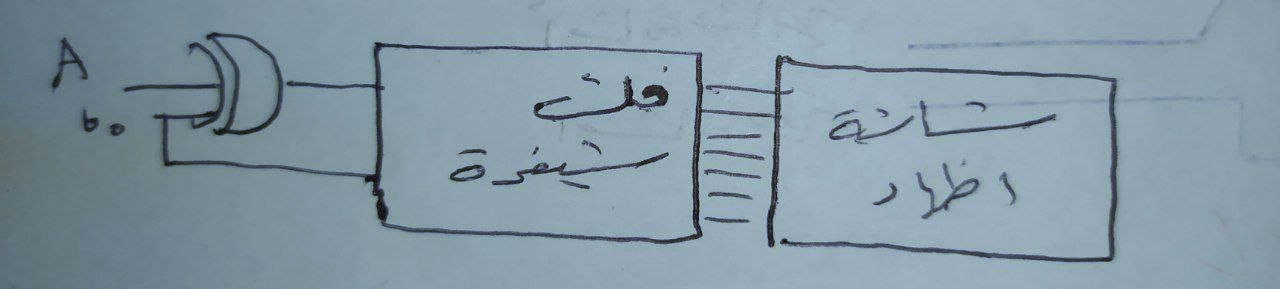 A
b₀
فلت
شيفرة
شاشة
اظهار